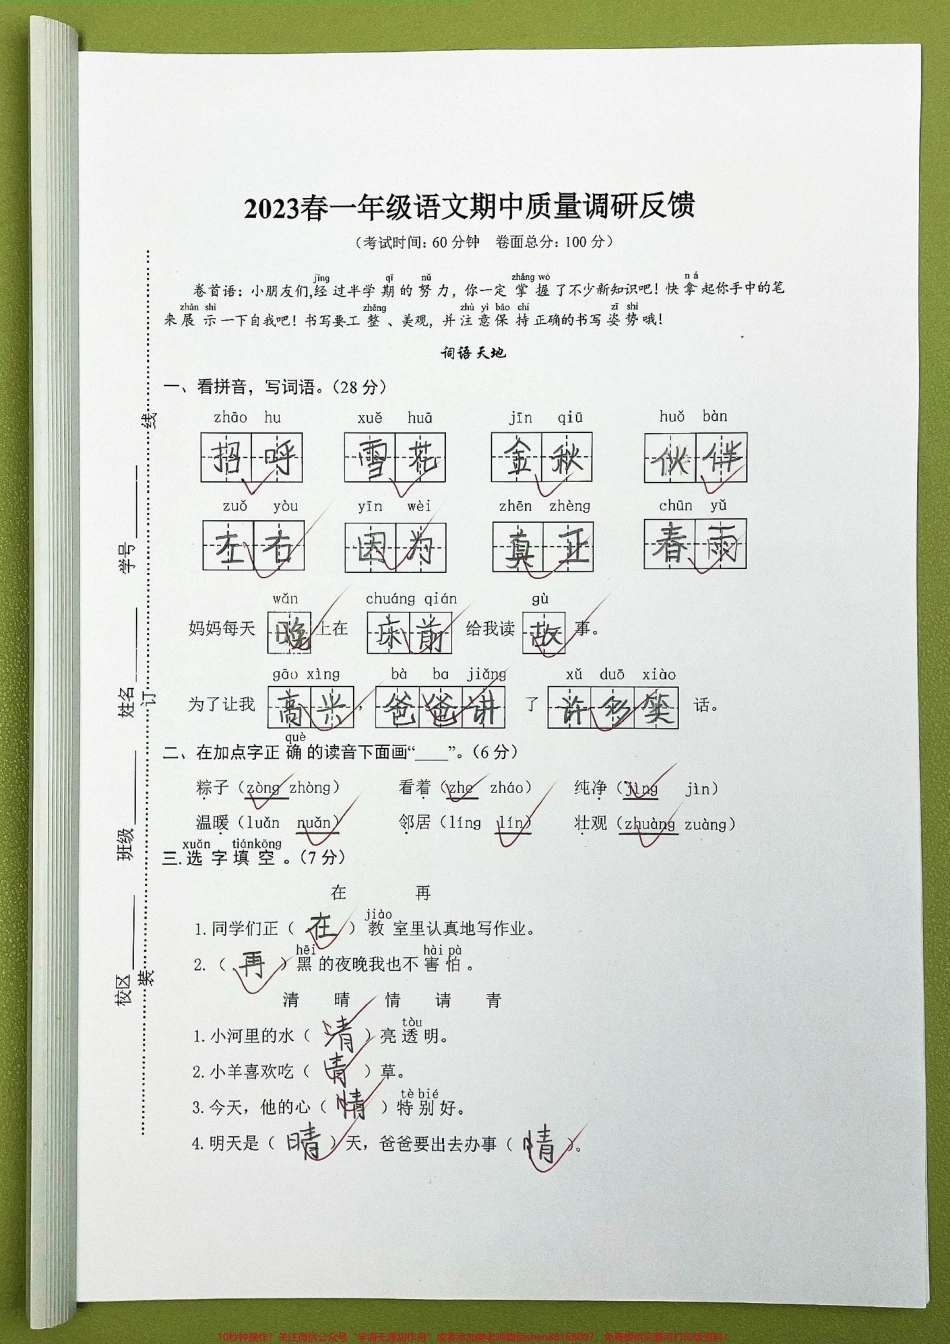 2023春一年级语文期中质量调研反馈
（考试时间：60分钟 卷面总分：100分）
jīng qī nǔ zhǎng wò ná
卷首语：小朋友们,经过半学期的努力，你一定掌握了不少新知识吧！快拿起你手中的笔
zhǎn shì zhěng zhù yì bǎo chí zī shì
来展示一下自我吧！书写要工整、美观，并注意保持正确的书写姿势哦！
词语天地
一、看拼音，写词语。（28分）
zhāo hu xuě huā jīn qiū huǒ bàn
招呼 雪花 金秋 伙伴
zuǒ yòu yīn wèi zhēn zhèng chūn yǔ
左右 因为 真正 春雨
wǎn chuáng qián gù
妈妈每天 晚 上在 床前 给我读 故 事。
gāo xìng bà ba jiǎng xǔ duō xiào
为了让我 高兴 ，爸爸讲 了 许多笑 话。
què
二、在加点字正确的读音下面画“____”。（6分）
粽子（zòng zhòng） 看着（zhe zháo） 纯净（jìng jìn）
温暖（luǎn nuǎn） 邻居（líng lín） 壮观（zhuàng zuàng）
xuǎn tiánkòng
三.选字填空。（7分）
在 再
jiào
1.同学们正（ 在 ）教室里认真地写作业。
hēi hài pà
2.（ 再 ）黑的夜晚我也不害怕。
清 晴 情 请 青
tòu
1.小河里的水（ 清 ）亮透明。
2.小羊喜欢吃（ 青 ）草。
tè bié
3.今天，他的心（ 情 ）特别好。
4.明天是（ 晴 ）天，爸爸要出去办事（ 情 ）。
校区
班级
姓名
学号
装
订
线
10秒钟操作！关注微信公众号“学海无涯甜作舟”或者添加樊老师微信shen88168007，免费提供完整可打印版资料！